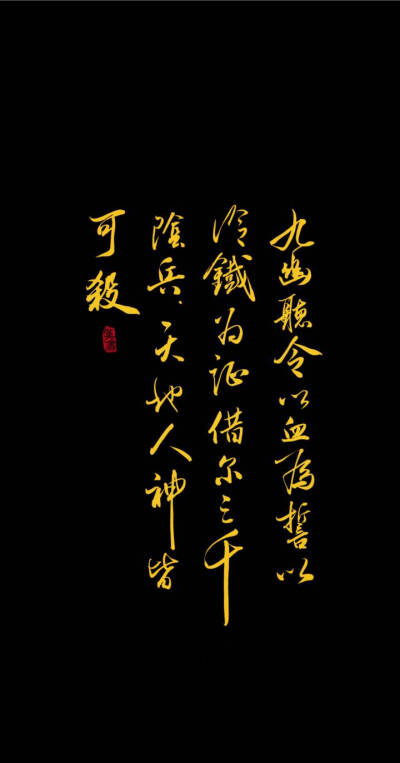 九幽聽令以血為誓以
冷鐵为证借尔三千
陰兵、天地人神皆
可殺